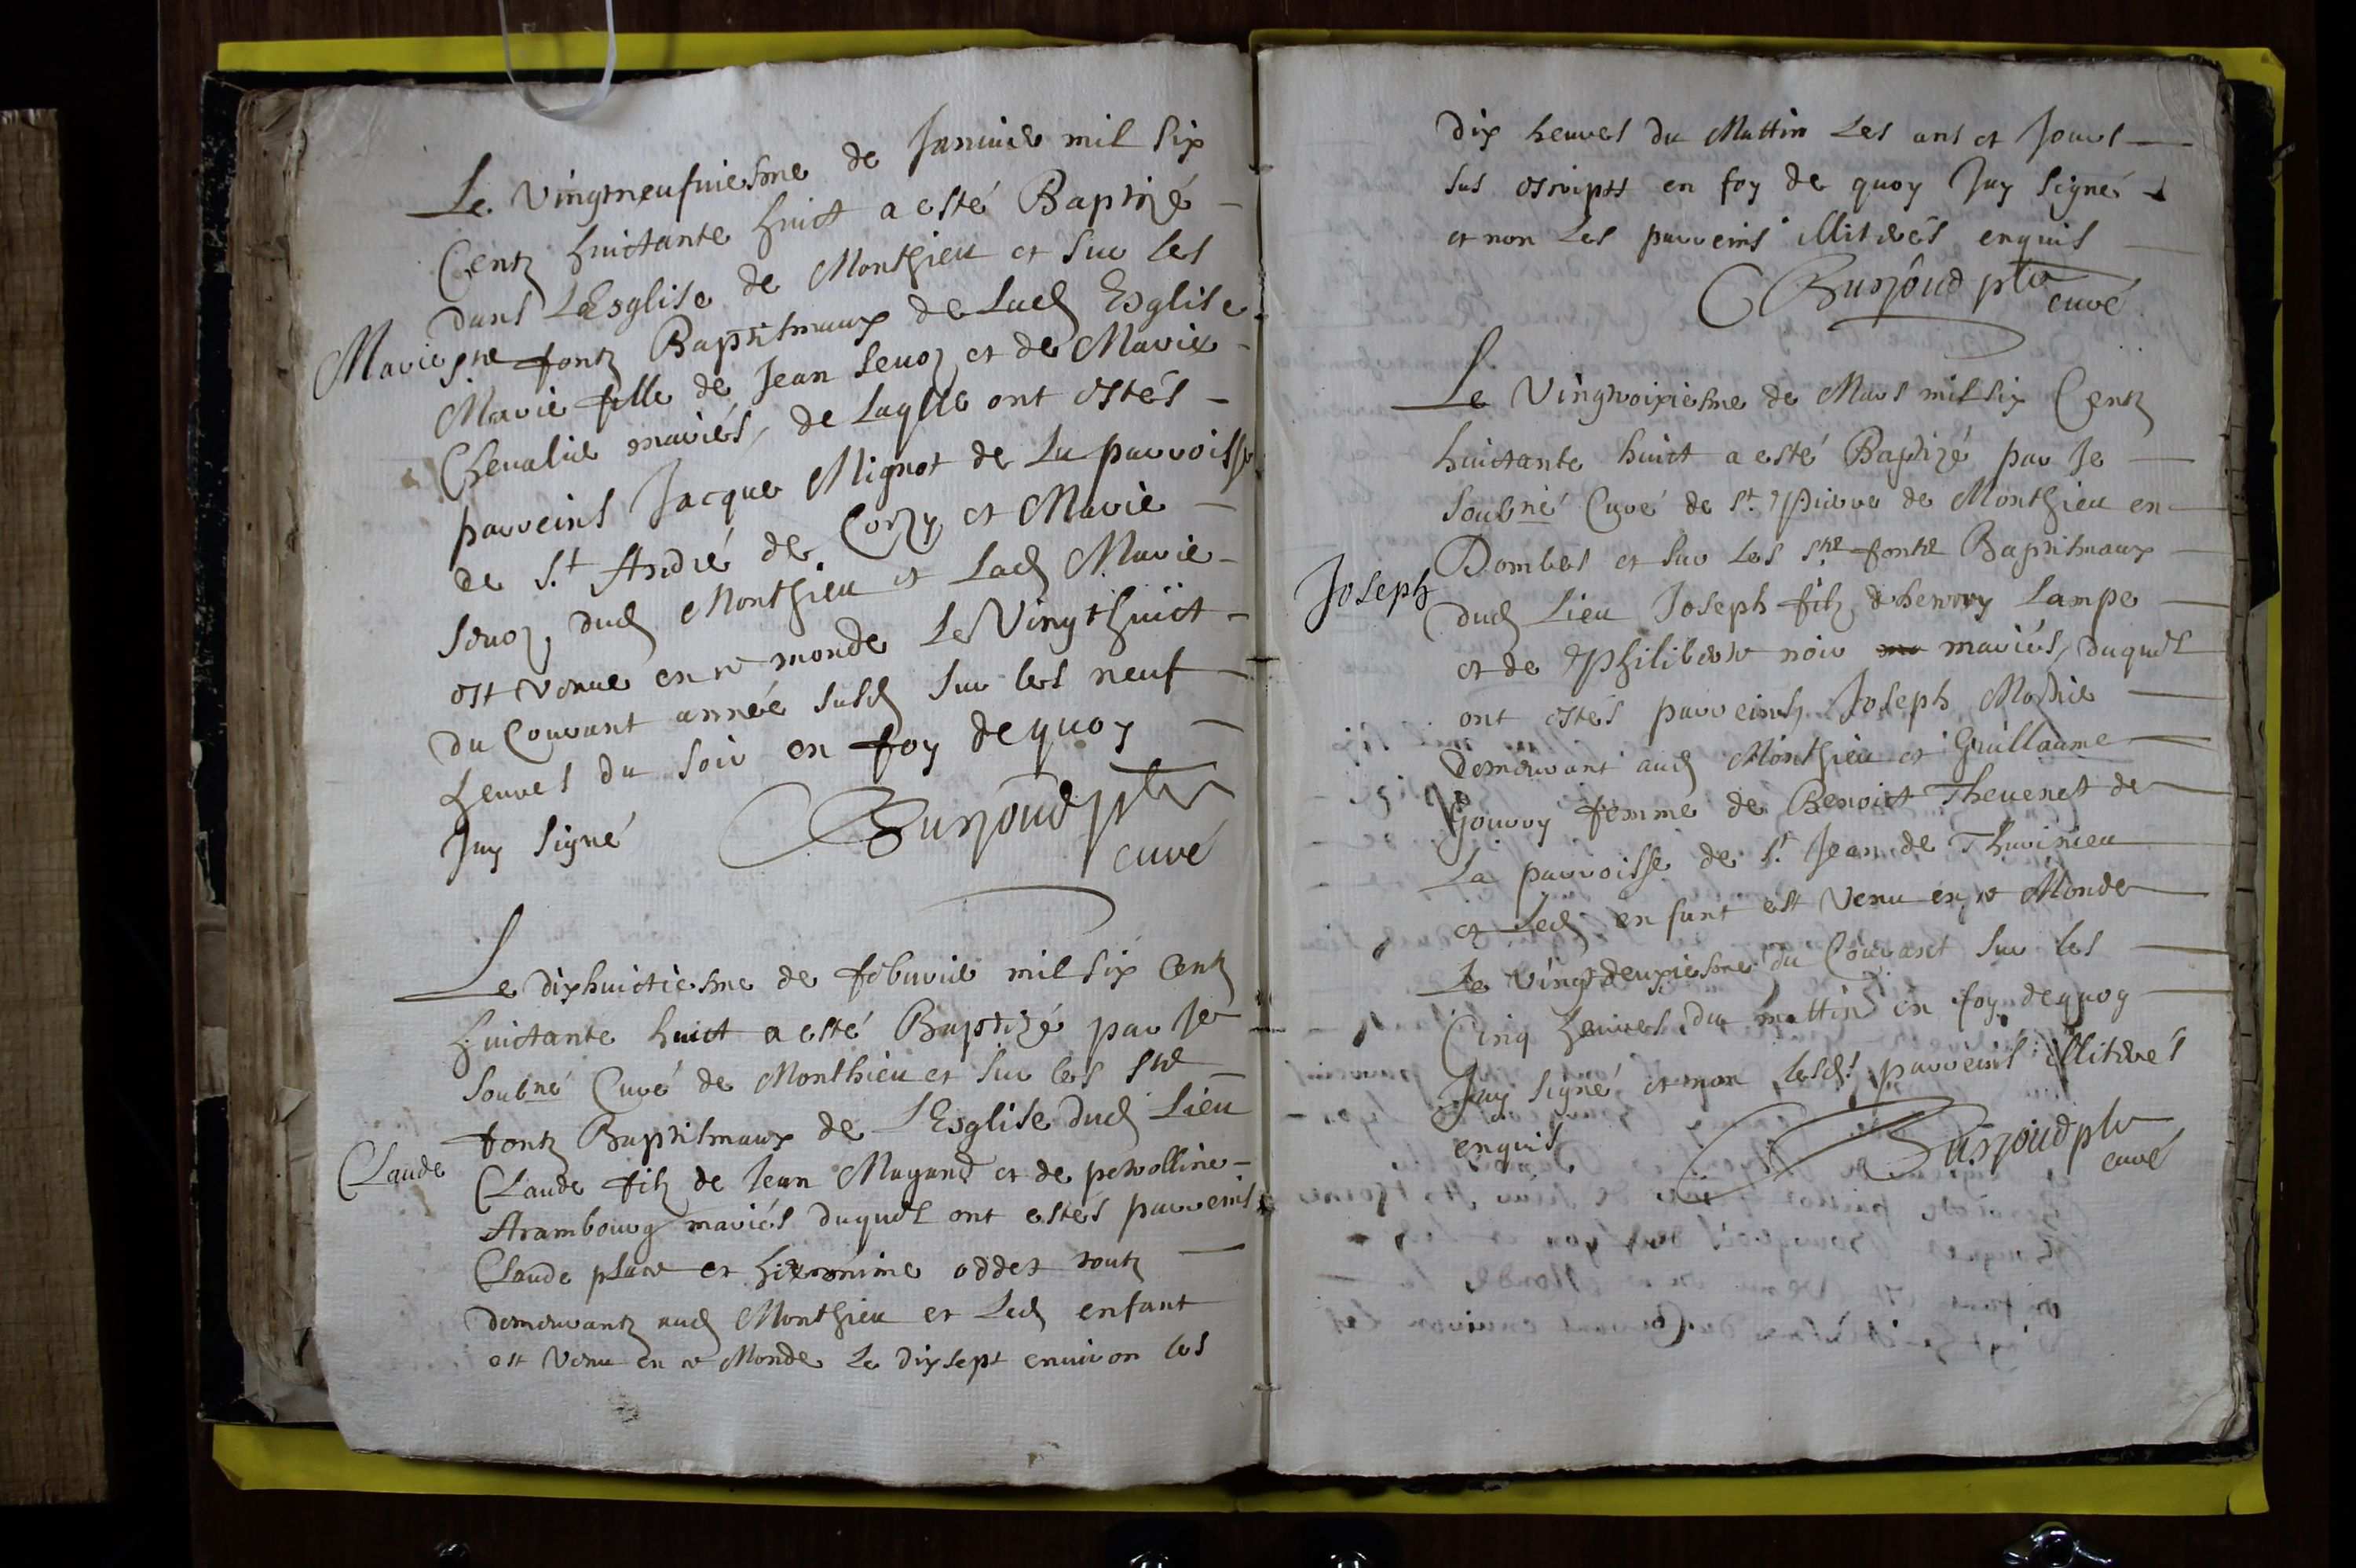 Le vingtneufviesme de Janvier mil six
Centz huictante huict a esté Baptizé
dans L'Esglise de Monthieu et sur les
Marie
ste fontz Baptismaux de Lad Esglise
Marie fille de Jean Sevoz et de Marie
Chevalier mariés, de Laqlle ont estés
parreins Jacque Mignot de La parroisse
de St André de Corzy et Marie
Sevoz dud Monthieu et Lad Marie
est venue en ce monde Le Vingthuict
du Courant année susd sur les neuf
heures du soir en foy dequoy
Jay signé
Burjoud ptre
curé
Le dixhuictiesme de febvrier mil six Centz
huictante huict a esté Baptizé par Je
soubné Curé de Monthieu et sur les ste
fontz Baptismaux de L'Esglise dud Lieu
Claude
Claude filz de Jean Magand et de petrolline
Arambourg mariés duquel ont estés parreins
Claude place et hieronime oddet toutz
demeurantz aud Monthieu et Led enfant
est venu en ce Monde Le dixsept environ les
dix heures du Mattin Les ans et Jours
sus escripts en foy de quoy Jay signé
et non Les parreins illiterés enquis
Burjoud ptre
curé
Le Vingtroixiesme de Mars mil six Centz
huictante huict a esté Baptizé par Je
soubné Curé de St Pierre de Monthieu en
Dombes et sur Les ste fontz Baptismaux
Joseph
dud Lieu Joseph filz de henrry Lampe
et de Philiberte noir mariés, duquel
ont estés parreins, Joseph
demeurant aud Monthieu et Guillaume
Gourry femme de Benoict Thevenet de
La parroisse de St Jean de Thurinieu
et Led enfant est Venu en ce Monde
Le Vingtdeuxiesme du Courant sur les
Cinq heures du mattin en foy dequoy
Jay signé et non lesds parreins illiterés
enquis
Burjoud ptre
curé